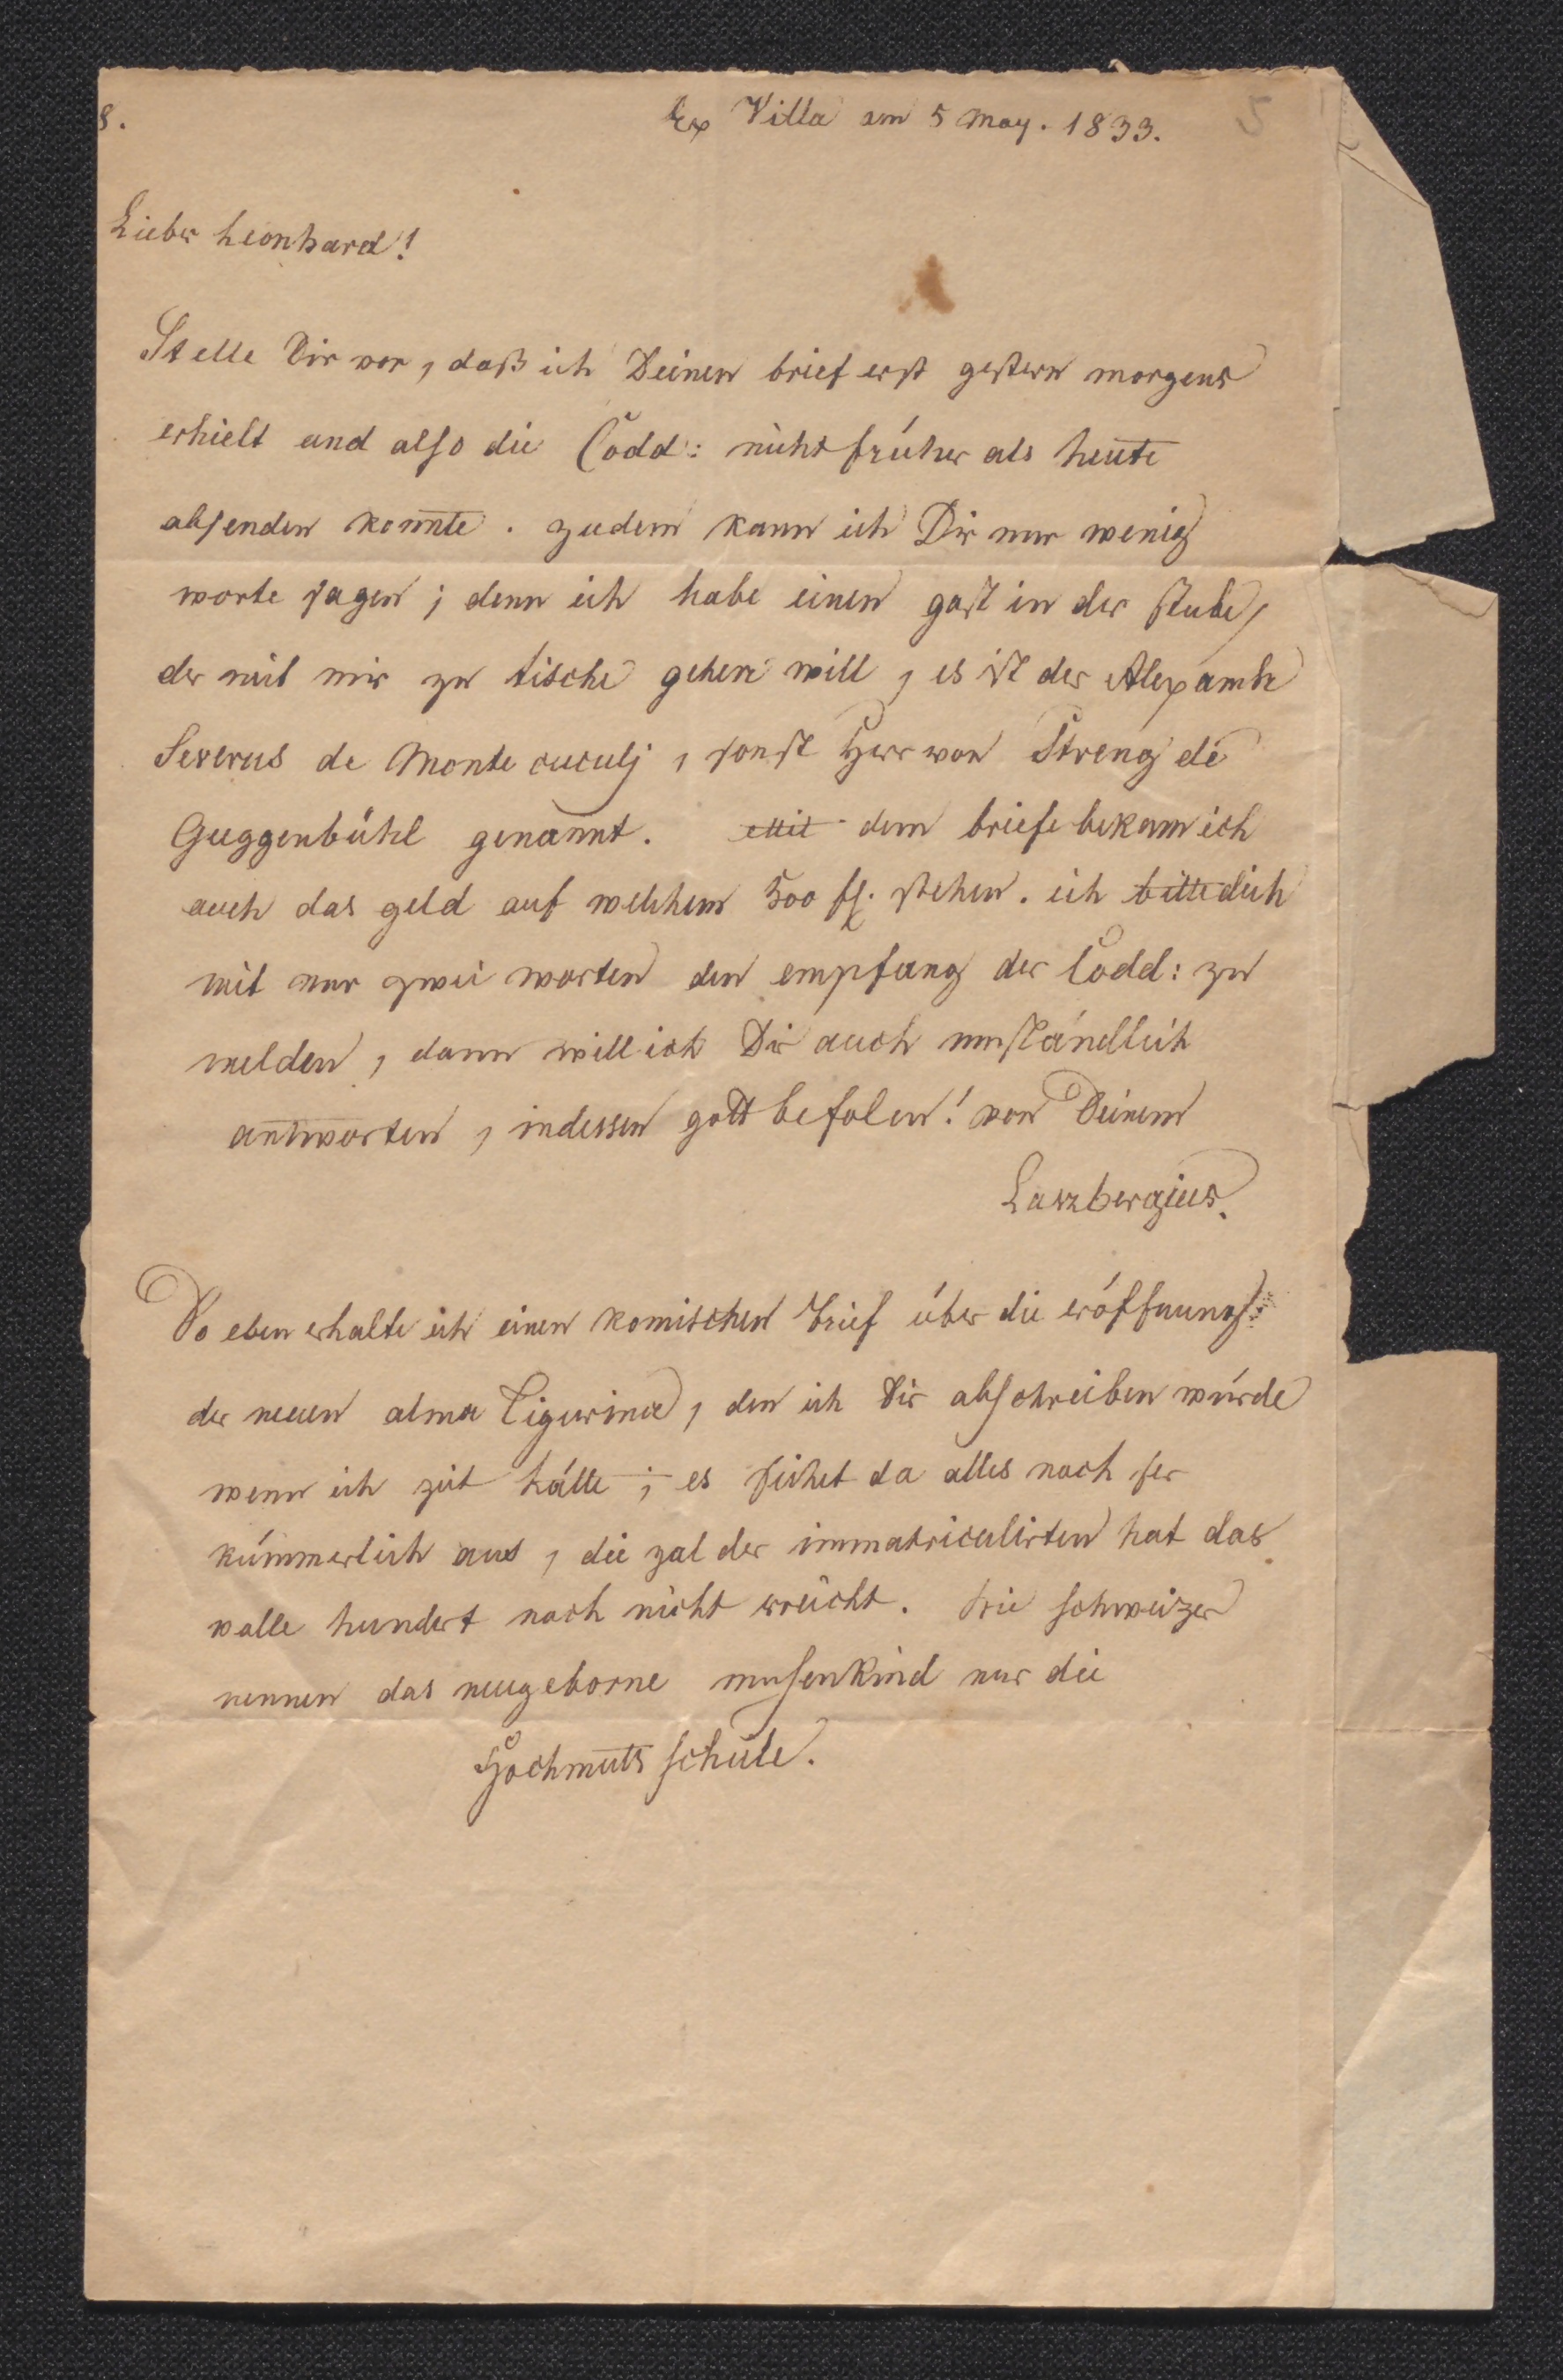 8.
Ex Villa am 5 May. 1833.
5
Lieber Leonhard!
Stelle Dir vor, daß ich Deinen brief erst gestern morgens
erhielt und also die Codd: nicht früher als heute
absenden konnte. zudem kann ich Dir nur wenig
worte sagen; denn ich habe einen gast in der stube,
der mit mir zu tische gehen will, es ist der Alexander
Severus de Monte cuculj, sonst Herr von Streng de
Guggenbühl genannt. Mit dem briefe bekam ich
auch das geld auf welchem 500 fl. stehen. ich bitte dich
mit nur zwei worten den empfang der Codd: zu
melden, dann will ich Dir auch umständlich
antworten, indessen gott befolen! von Deinem
Laszbergius.
So eben erhalte ich einen komischen brief über die eröffnung
der neuen alma Tigurina, den ich Dir abschreiben würde
wenn ich zeit hätte; es siehet da alles noch ser
kümmerlich aus, die zal der immatriculirten hat das
volle hundert noch nicht erreicht. die schweizer
nennen das neugeborne musenkind nur die
Hochmuts schule.